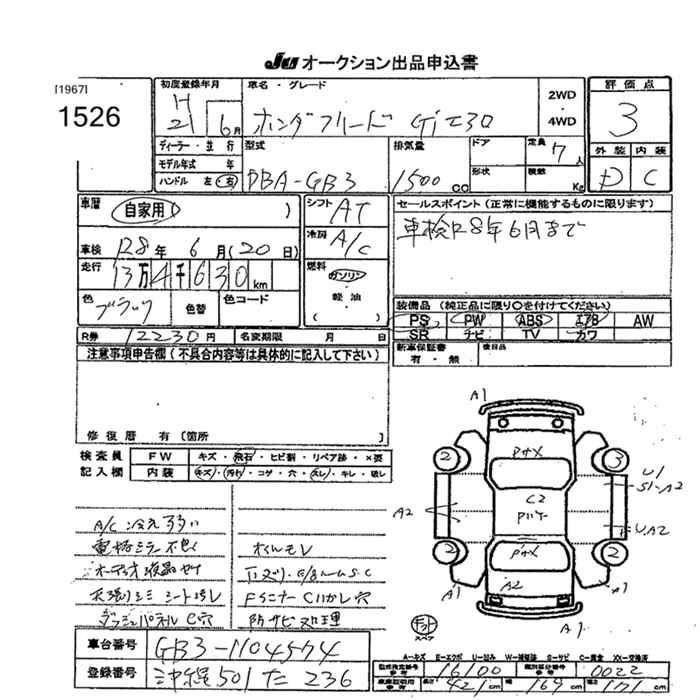 JU オークション出品申込書
[1967]
1526
初度登録年月
H
21 6月
車名・グレード
ホンダ フリード Gi エアロ
2WD
・
4WD
評価点
3
外装 内装
D C
ディーラー・並行
モデル年式 年
ハンドル 左・右
型式
DBA-GB3
排気量
1500 cc
ドア
形状
定員
7人
積数
Kg
車歴
自家用 ( )
シフト
AT
冷房
A/C
燃料
ガソリン
・
軽油
( )
車検 R8年 6月 (20日)
走行
13万4千630km
色
ブラック
色替
色コード
R券 12230円
名変期限 月 日
セールスポイント (正常に機能するものに限ります)
車検R8年6月まで
装備品 (純正品に限り○を付けてください)
PS PW ABS エアB AW
SR ナビ TV カワ
新車保証書
有・無
後日品
注意事項申告欄 (不具合内容等は具体的に記入して下さい)
修復歴 有 [箇所 ]
検査員
記入欄
FW キズ・飛石・ヒビ割・リペア跡・×要
内装 キズ・汚れ・コゲ・穴・スレ・キレ・破レ
A/C 冷え弱い
電格ミラー不良
オーディオ液晶ヤケ
天張りシミ シート汚レ
ダッシュパネル ビ穴
オイルモレ
下スリ・E/Bルーム S・C
Fコーナー C はがし穴
防サビ処理
車台番号 GB3-1104574
登録番号 沖縄501た236
A1
2
3
U1
S1-A2
A2
C2
Pハゲ
UA2
2
2
A2
A1
A1
A1
スペア
A-キズ E-エクボ U-凹み W-補修跡 S-サビ C-腐食 XX-交換済
型式指定番号 16100
類別区分番号 0022